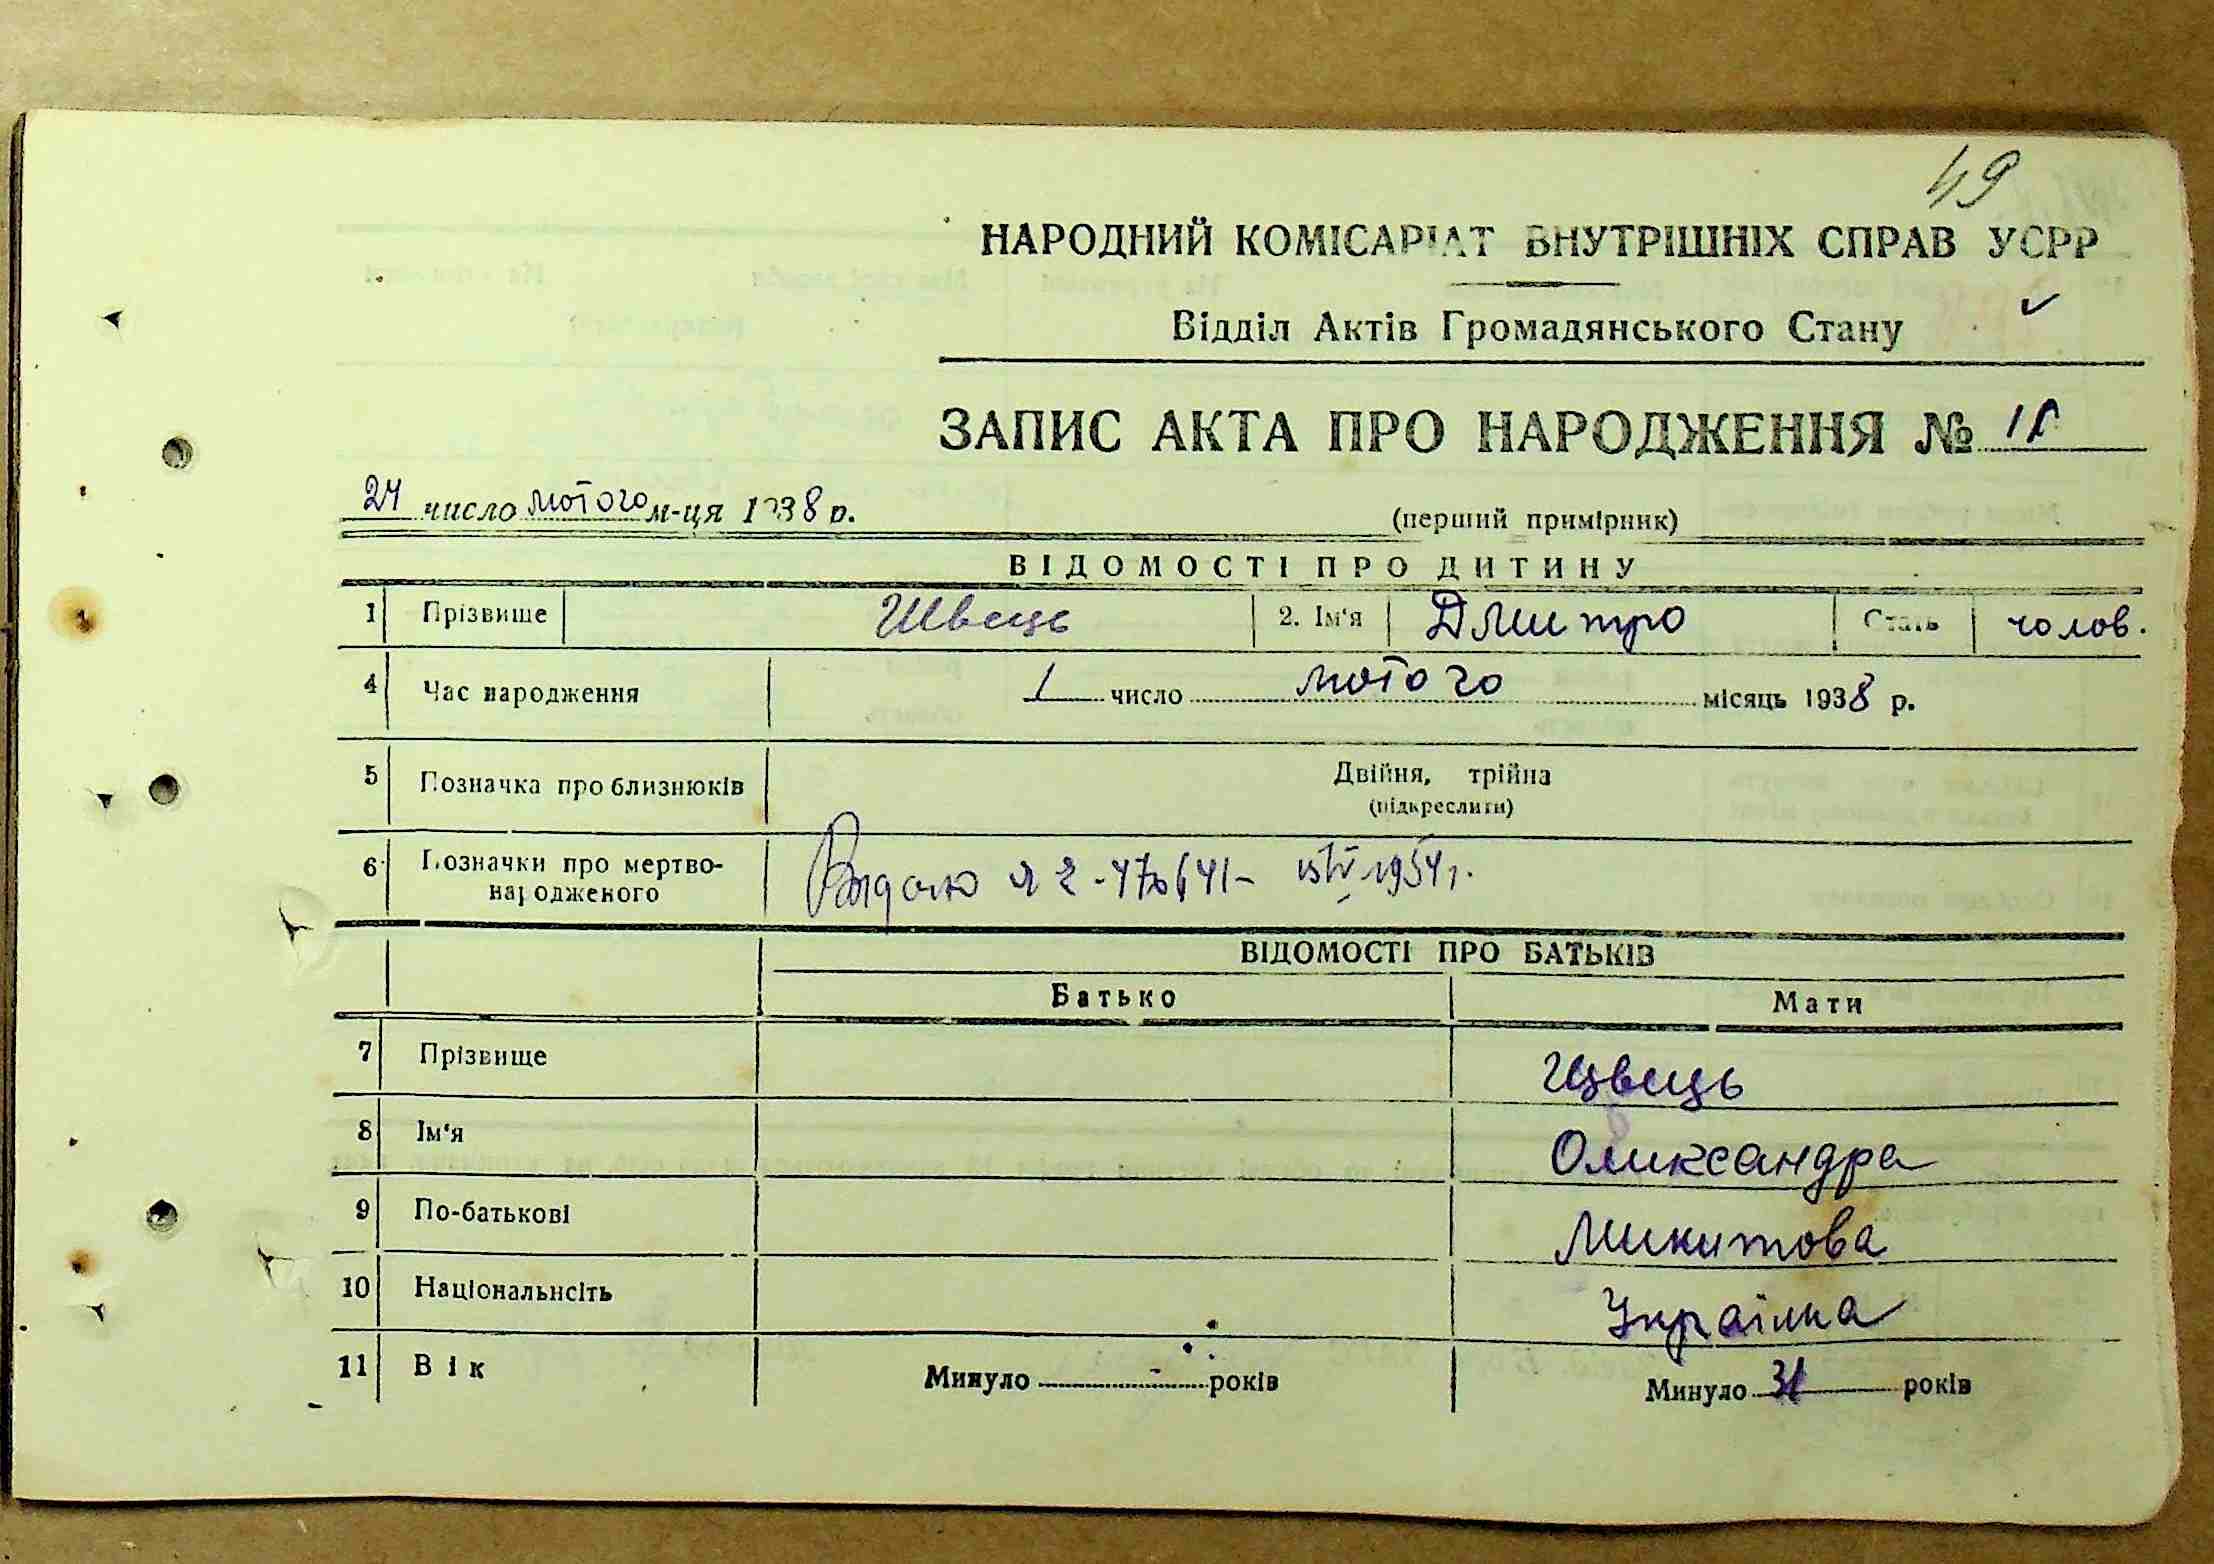 49
НАРОДНИЙ КОМІСАРІАТ ВНУТРІШНІХ СПРАВ УСРР
Відділ Актів Громадянського Стану
ЗАПИС АКТА ПРО НАРОДЖЕННЯ №
24 число лютого м-ця 1938 р.
(перший примірник)
ВІДОМОСТІ ПРО ДИТИНУ
1 Прізвище Швець 2. Ім'я Дмитро Стать чолов.
4 Час народження 1 число лютого місяць 1938 р.
5 Позначка про близнюків Двійня, трійня
(підкреслити)
6 Позначки про мертво-
народженого 1954 г.
ВІДОМОСТІ ПРО БАТЬКІВ
Батько Мати
7 Прізвище Швець
8 Ім'я Олександра
9 По-батькові Микитова
10 Національнсіть Українка
11 Вік Минуло років Минуло 31 років